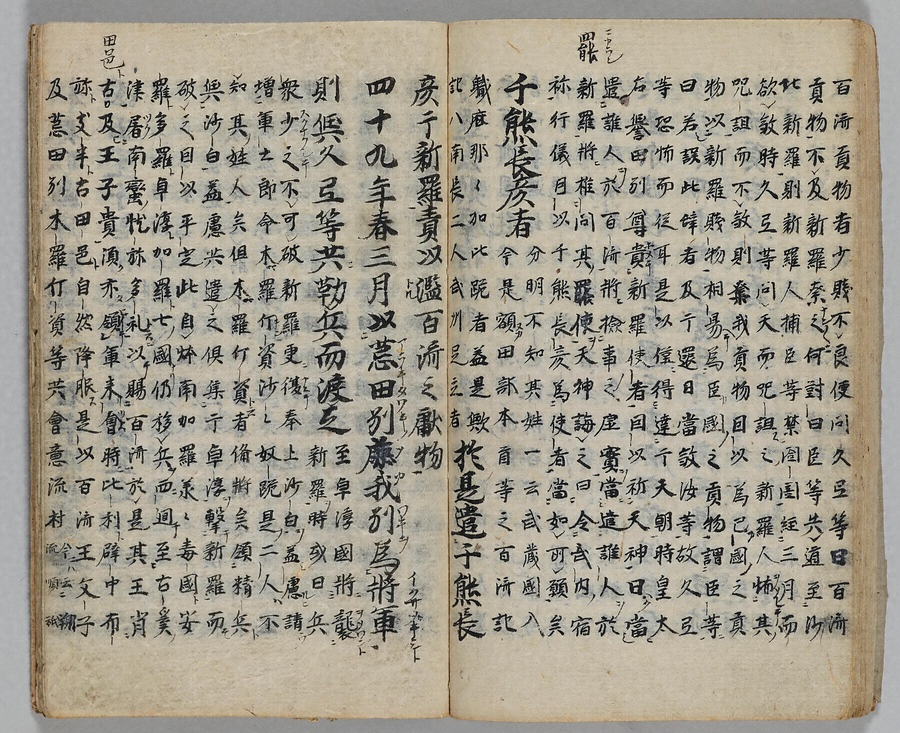 罷
百済貢物者少賤不良便問久氐等曰百済
貢物不及新羅奈之何對曰臣等共道至沙
比新羅則新羅人捕臣等禁囹圄経三月而
欲殺時久氐等向天而呪詛之新羅人怖其
呪詛而不殺則奪我貢物因以為己國之貢
物以新羅賤物相易為臣國之貢物謂臣等
曰若誤此辞者及于還日當殺汝等故久氐
等恐怖而従耳是以僅得達于天朝時皇太
右譽田別尊責新羅使者因以祈天神曰當
遣誰人於百済將撿事之虚實當遣誰人於
新羅將推問其罪使天神誨之曰令武内宿
祢行儀因以千熊長彦為使者當如所願矣
千熊長彦者
分明不知其姓一云武蔵國人
今是額田部本首等之百済記
職麻那々加比跪者盖是歟
記八南長二人武州足立者
於是遣千熊長
田邑
彦于新羅責以濫百済之獻物
四十九年春三月以荒田別鹿我別為將軍
則與久氐等共勒兵而渡之
至卓淳國將襲
新羅時或曰兵
衆少之不可破新羅更復奉上沙白盖慮請
増軍士即命木羅斤資沙々奴跪是二人不
知其姓人矣但木羅斤資者百済將矣領精兵
與沙白盖慮共遣之倶集于卓淳撃新羅而
破之因以平定比自㶱南加羅㖨毒國安
羅多羅卓淳加羅七國仍移兵而迴至古奚
津屠南蠻忱弥多礼以賜百済於是其王肖
古及王子貴湏亦領軍来會時比利辟中布
弥支半古四邑自然降服是以百済王父子
及荒田別木羅斤資等共會意流村